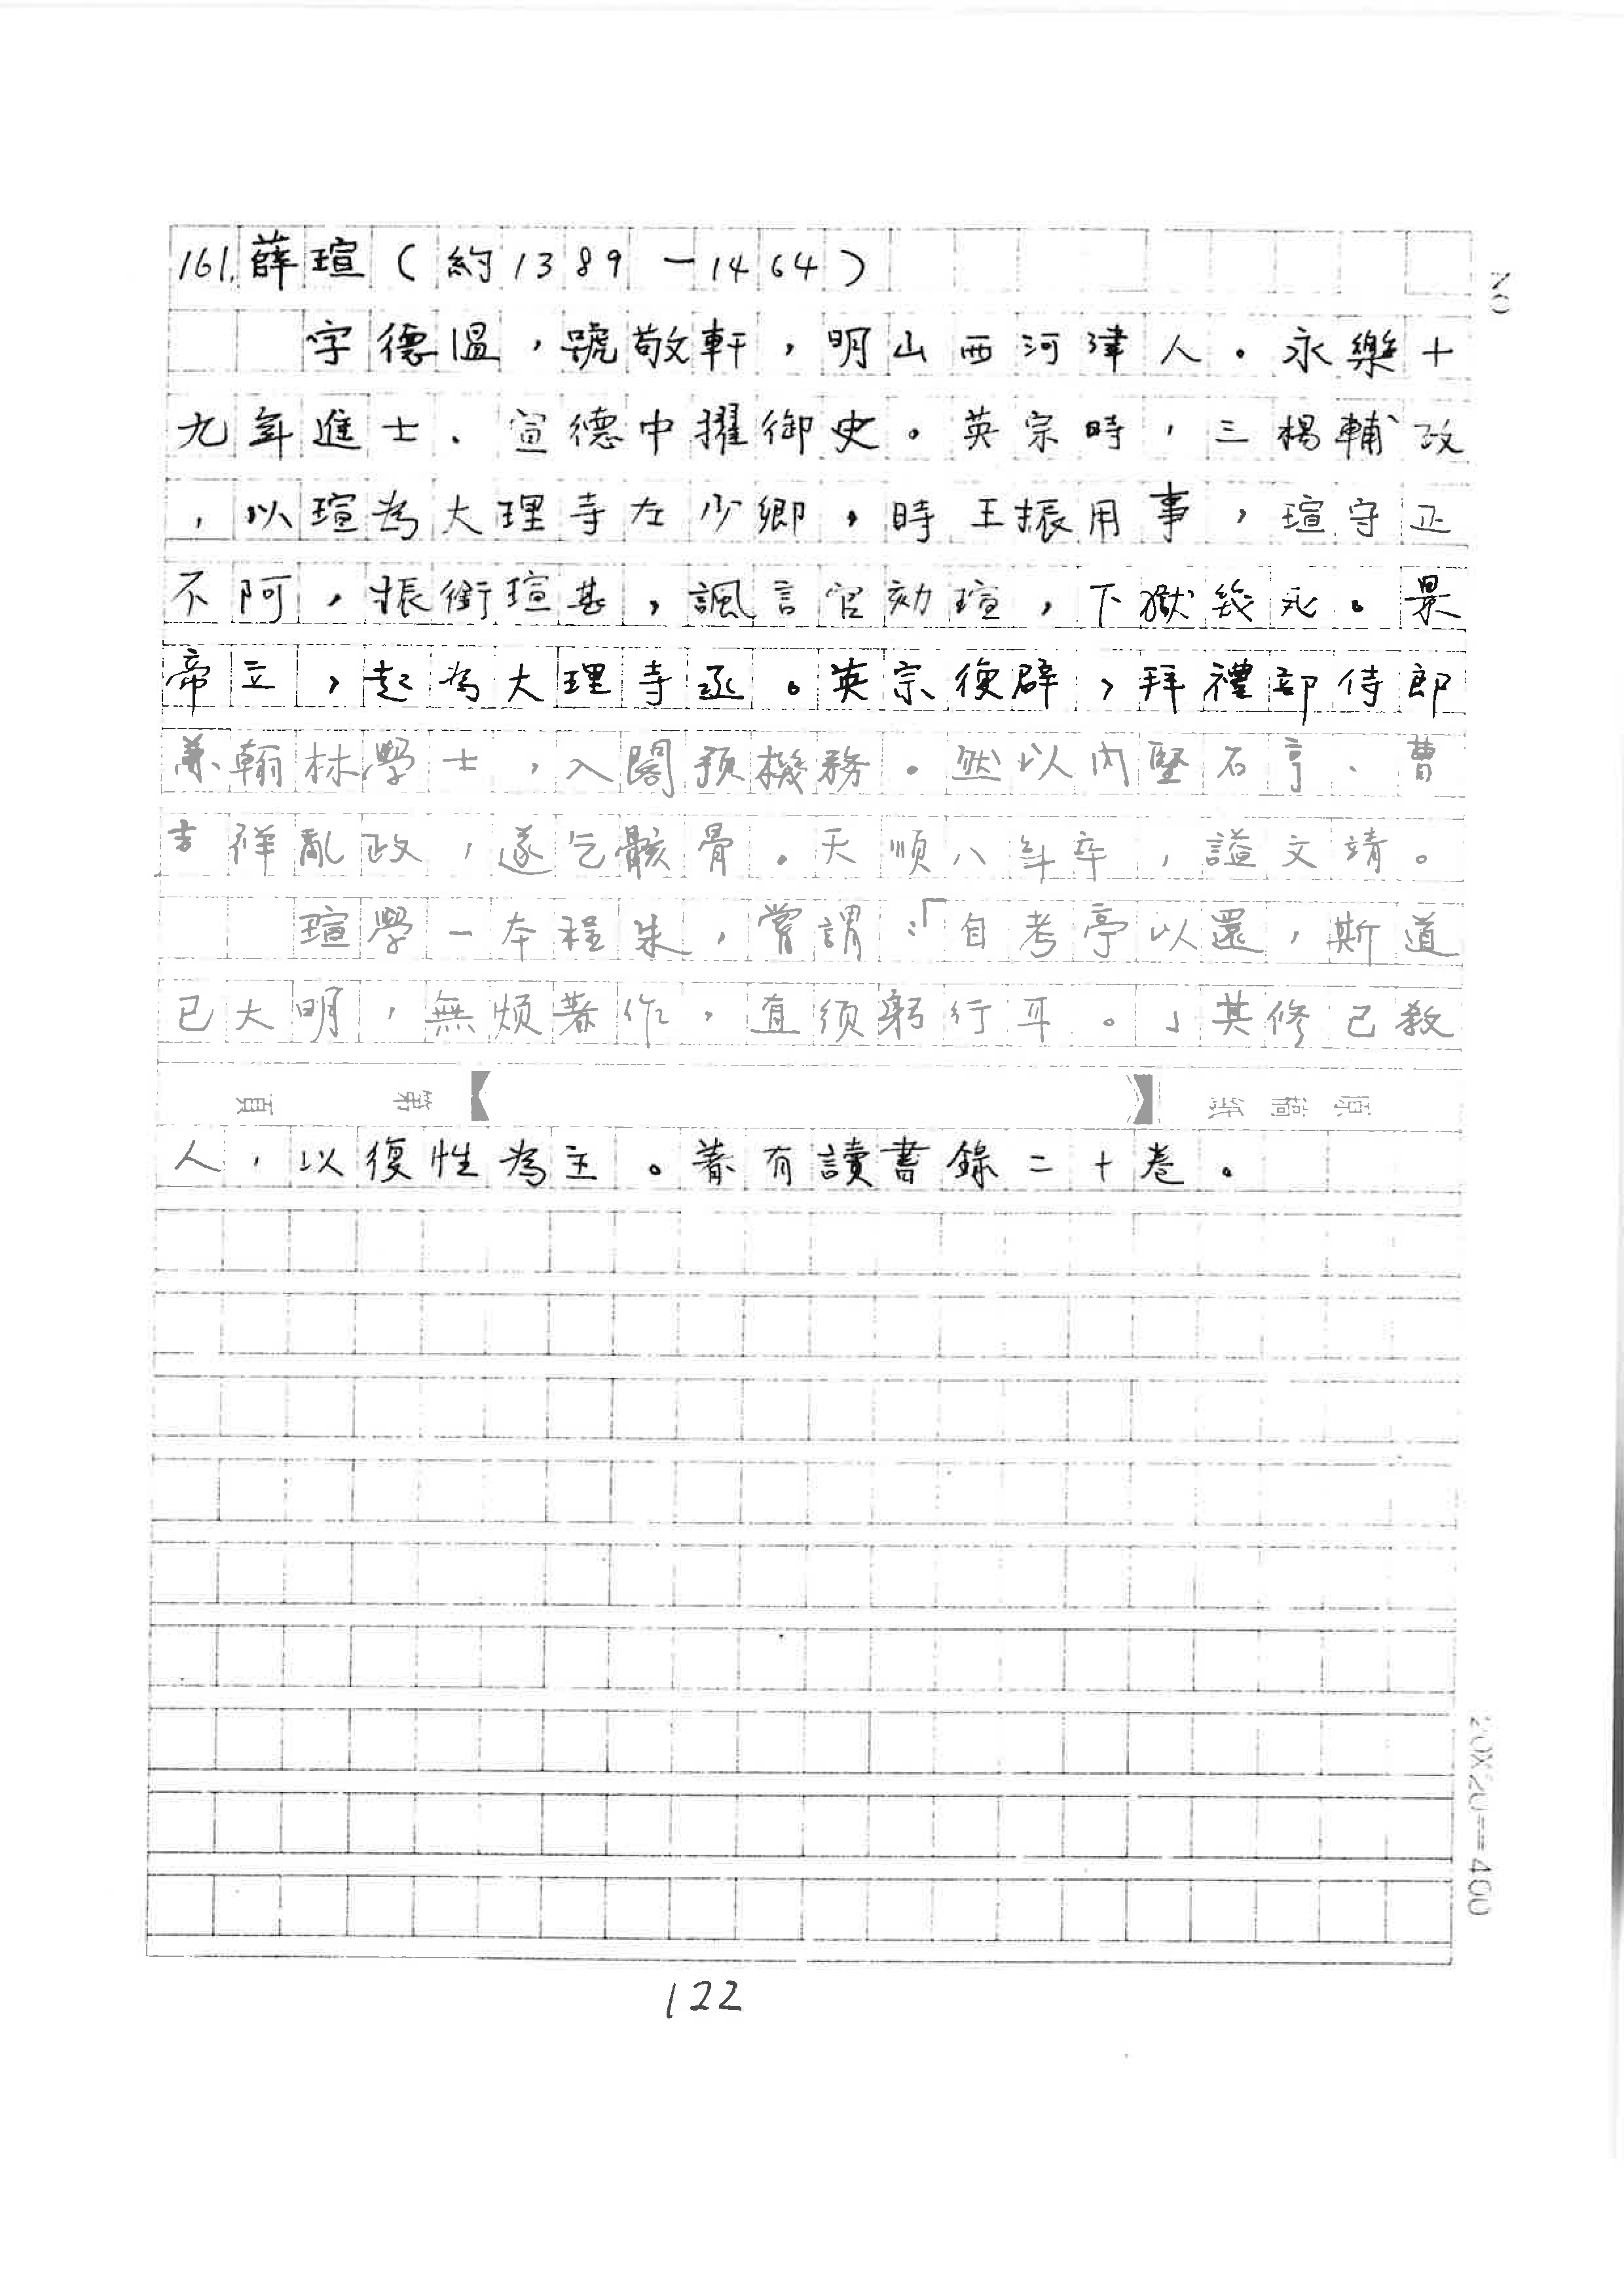 161.薛瑄(約1389—1464)
字德溫，號敬軒，明山西河津人。永樂十
九年進士、宣德中擢御史。英宗時，三楊輔政
，以瑄為大理寺左少卿，時王振用事，瑄守正
不阿，振銜瑄甚，諷言官劾瑄，下獄幾死。景
帝立，起為大理寺丞。英宗復辟，拜禮部侍郎
兼翰林學士，入閣預機務。然以內堅石亨、曹
吉祥亂政，遂乞骸骨。天順八年卒，謚文靖。
瑄學一本程朱，嘗謂：「自考亭以還，斯道
已大明，無煩著作，直須躬行耳。」其修己教
原稿紙 第 頁
人，以復性為主。著有讀書錄二十卷。
NO
20X20=400
122